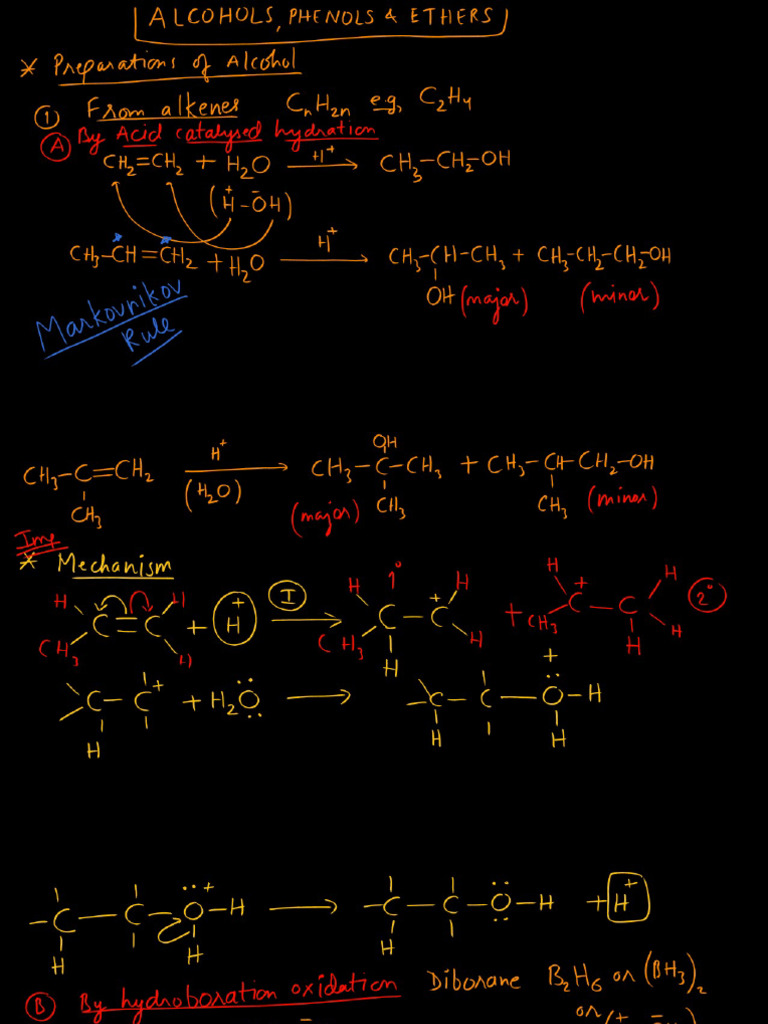 ALCOHOLS, PHENOLS & ETHERS
* Preparations of Alcohol
① From alkenes CnH2n e.g, C2H4
Ⓐ By Acid catalysed hydration
CH2=CH2 + H2O —H+→ CH3–CH2–OH
(H+–O-H)
CH3–CH=CH2 + H2O —H+→ CH3–CH–CH3 + CH3–CH2–CH2–OH
OH (major) (minor)
Markovnikov
Rule
H+ OH
CH3–C=CH2 → CH3–C–CH3 + CH3–CH–CH2–OH
(H2O)
CH3 (major) CH3 CH3 (minor)
Imp
* Mechanism
H H H 1° H H H
C=C + H+ Ⓘ → C–C+ + C+–C 2°
CH3 H CH3 H H CH3 H H
C–C+ + H2O → C–C–O+–H
H H H
C–C–O+–H → C–C–O–H + H+
H H H
Ⓑ By hydroboration oxidation Diborane B2H6 or (BH3)2
or